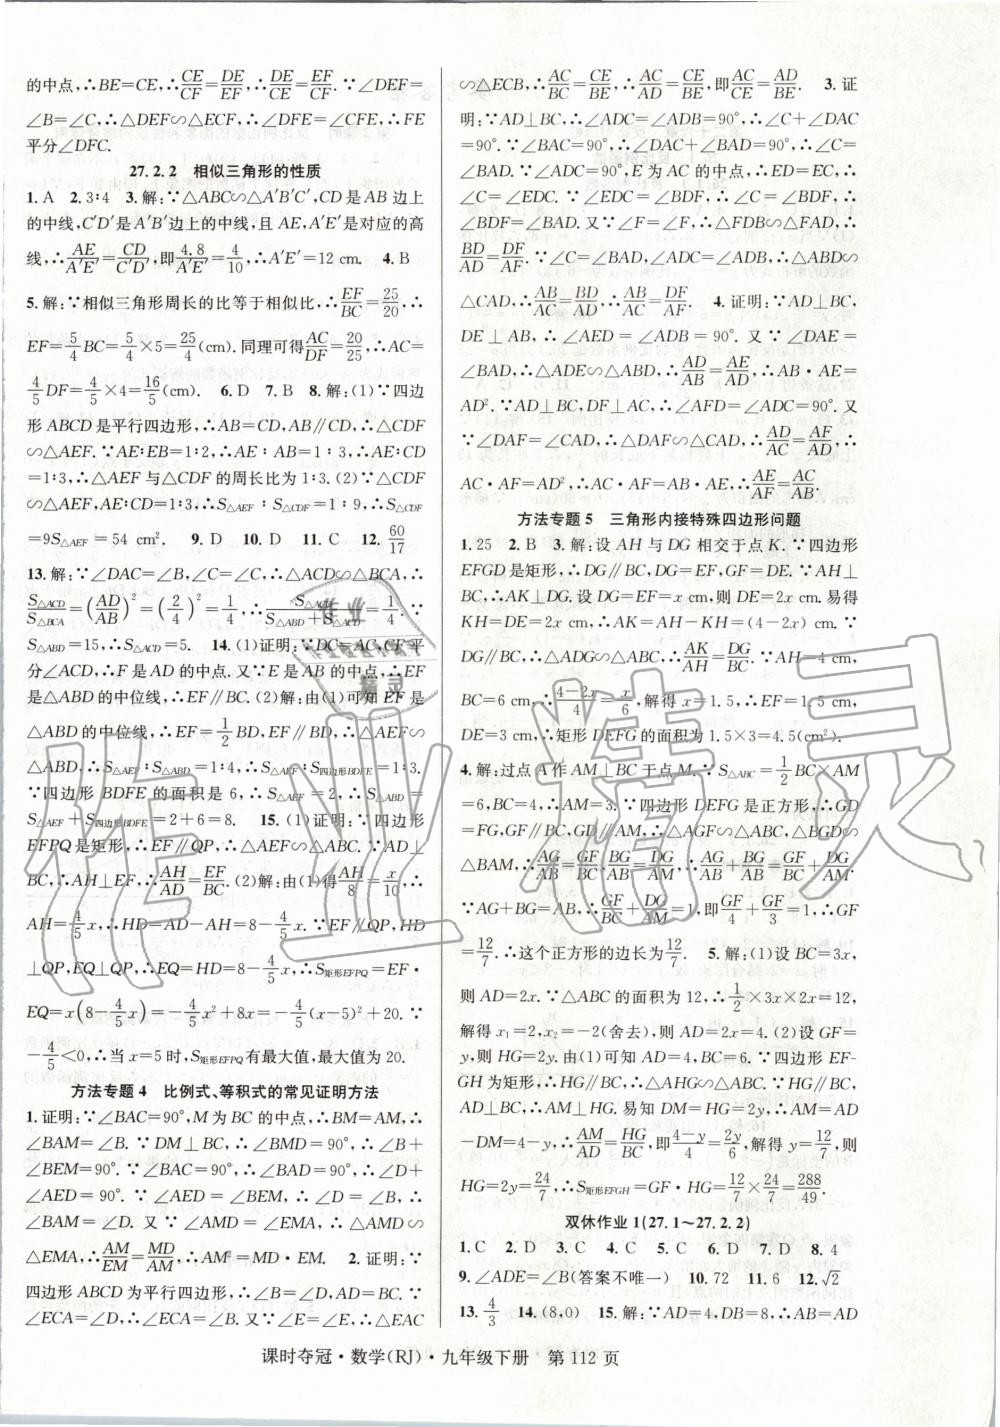 的中点,∴BE=CE,∴CE/CF=DE/EF,∴CE/DE=EF/CF.∵∠DEF=
∠B=∠C,∴△DEF∽△ECF,∴∠DFE=∠CFE,∴FE
平分∠DFC.
27.2.2 相似三角形的性质
1.A 2.3∶4 3.解:∵△ABC∽△A′B′C′,CD是AB边上
的中线,C′D′是A′B′边上的中线,且AE,A′E′是对应的高
线,∴AE/A′E′=CD/C′D′,即4.8/A′E′=4/10,∴A′E′=12 cm. 4.B
5.解:∵相似三角形周长的比等于相似比,∴EF/BC=25/20.∴
EF=5/4BC=5/4×5=25/4(cm).同理可得AC/DF=20/25,∴AC=
4/5DF=4/5×4=16/5(cm). 6.D 7.B 8.解:(1)∵四边
形ABCD是平行四边形,∴AB=CD,AB∥CD,∴△CDF
∽△AEF.∵AE∶EB=1∶2,∴AE∶AB=1∶3,∴AE∶CD
=1∶3,∴△AEF与△CDF的周长比为1∶3.(2)∵△CDF
∽△AEF,AE∶CD=1∶3,∴S△AEF∶S△CDF=1∶9,∴S△CDF
=9S△AEF=54 cm². 9.D 10.D 11.C 12.60/17
13.解:∵∠DAC=∠B,∠C=∠C,∴△ACD∽△BCA,∴
S△ACD/S△BCA=(AD/AB)²=(2/4)²=1/4,∴S△ACD/(S△ABD+S△ACD)=1/4.∵
S△ABD=15,∴S△ACD=5. 14.(1)证明:∵DC=AC,CF平
分∠ACD,∴F是AD的中点.又∵E是AB的中点,∴EF
是△ABD的中位线,∴EF∥BC.(2)解:由(1)可知EF是
△ABD的中位线,∴EF=1/2BD,EF∥BD,∴△AEF∽
△ABD,∴S△AEF∶S△ABD=1∶4,∴S△AEF∶S四边形BDFE=1∶3.
∵四边形BDFE的面积是6,∴S△AEF=2,∴S△ABD=
S△AEF+S四边形BDFE=2+6=8. 15.(1)证明:∵四边形
EFPQ是矩形,∴EF∥QP,∴△AEF∽△ABC.∵AD⊥
BC,∴AH⊥EF,∴AH/AD=EF/BC.(2)解:由(1)得AH/8=x/10,∴
AH=4/5x,∴HD=AD-AH=8-4/5x.∵EF∥QP,HD
⊥QP,EQ⊥QP,∴EQ=HD=8-4/5x,∴S矩形EFPQ=EF·
EQ=x(8-4/5x)=-4/5x²+8x=-4/5(x-5)²+20.∵
-4/5<0,∴当x=5时,S矩形EFPQ有最大值,最大值为20.
方法专题4 比例式、等积式的常见证明方法
1.证明:∵∠BAC=90°,M为BC的中点,∴BM=AM,∴
∠BAM=∠B.∵DM⊥BC,∴∠BMD=90°,∴∠B+
∠BEM=90°.∵∠BAC=90°,∴∠BAD=90°,∴∠D+
∠AED=90°.∵∠AED=∠BEM,∴∠D=∠B,∴
∠BAM=∠D.又∵∠AMD=∠EMA,∴△AMD∽
△EMA,∴AM/EM=MD/AM,∴AM²=MD·EM. 2.证明:∵
四边形ABCD为平行四边形,∴∠BAC=∠DCA.∵
∠ECA=∠D,∴∠ECA=∠B.又∵∠E=∠E,∴△EAC
∽△ECB,∴AC/BC=CE/BE,∴AC/AD=CE/BE,即CE/BE=AC/AD. 3.证
明:∵AD⊥BC,∴∠ADB=∠ADC=90°,∴∠C+∠DAC
=90°.∵∠BAC=90°,∴∠DAC+∠BAD=90°,∴∠C=
∠BAD.∵∠ADC=90°,E为AC的中点,∴ED=EC,∴
∠C=∠EDC.∵∠EDC=∠BDF,∴∠C=∠BDF,∴
∠BDF=∠BAD.又∵∠F=∠F,∴△FDB∽△FAD,∴
BD/AD=DF/AF.∵∠C=∠BAD,∠ADC=∠ADB,∴△ABD∽
△CAD,∴AB/AC=BD/AD,∴AB/AC=DF/AF. 4.证明:∵AD⊥BC,
DE⊥AB,∴∠AED=∠ADB=90°.又∵∠DAE=
∠BAD,∴△ADE∽△ABD,∴AD/AB=AE/AD,∴AB·AE=
AD².∵AD⊥BC,DF⊥AC,∴∠AFD=∠ADC=90°.又
∵∠DAF=∠CAD,∴△DAF∽△CAD,∴AD/AC=AF/AD,∴
AC·AF=AD²,∴AC·AF=AB·AE,∴AE/AF=AC/AB.
方法专题5 三角形内接特殊四边形问题
1.25 2.B 3.解:设AH与DG相交于点K.∵四边形
EFGD是矩形,∴DG∥BC,DG=EF,GF=DE.∵AH⊥
BC,∴AK⊥DG.设DE=GF=x cm,则DE=2x cm.易得
KH=DE=2x cm,∴AK=AH-KH=(4-2x)cm.∵
DG∥BC,∴△ADG∽△ABC,∴AK/AH=DG/BC.∵AH=4 cm,
BC=6 cm,∴(4-2x)/4=x/6,解得x=1.5,∴EF=1.5 cm,
DE=3 cm,∴矩形DEFG的面积为1.5×3=4.5(cm²).
4.解:过点A作AM⊥BC于点M.∵S△ABC=1/2BC×AM
=6,BC=4,∴AM=3.∵四边形DEFG是正方形,∴GD
=FG,GF∥BC,GD∥AM,∴△AGF∽△ABC,△BGD∽
△BAM,∴AG/AB=GF/BC,BG/AB=DG/AM,∴AG/AB+BG/AB=GF/BC+DG/AM.
∵AG+BG=AB,∴GF/BC+DG/AM=1,即GF/4+GF/3=1,∴GF
=12/7.∴这个正方形的边长为12/7. 5.解:(1)设BC=3x,
则AD=2x.∵△ABC的面积为12,∴1/2×3x×2x=12,
解得x₁=2,x₂=-2(舍去),则AD=2x=4.(2)设GF=
y,则HG=2y.由(1)可知,AD=4,BC=6.∵四边形EF-
GH为矩形,∴HG∥BC,∴△AHG∽△ABC.∵HG∥BC,
AD⊥BC,∴AD⊥HG.易知DM=HG=GF=y,∴AM=AD
-DM=4-y,∴AM/AD=HG/BC,即(4-y)/4=2y/6,解得y=12/7,则
HG=2y=24/7,∴S矩形EFGH=GF·HG=12/7×24/7=288/49.
双休作业1(27.1~27.2.2)
1.C 2.D 3.C 4.D 5.C 6.D 7.D 8.4
9.∠ADE=∠B(答案不唯一) 10.72 11.6 12.√2
13.4/3 14.(8,0) 15.解:∵AD=4,DB=8,∴AB=AD
课时夺冠·数学(RJ)·九年级下册 第112页
作业精灵